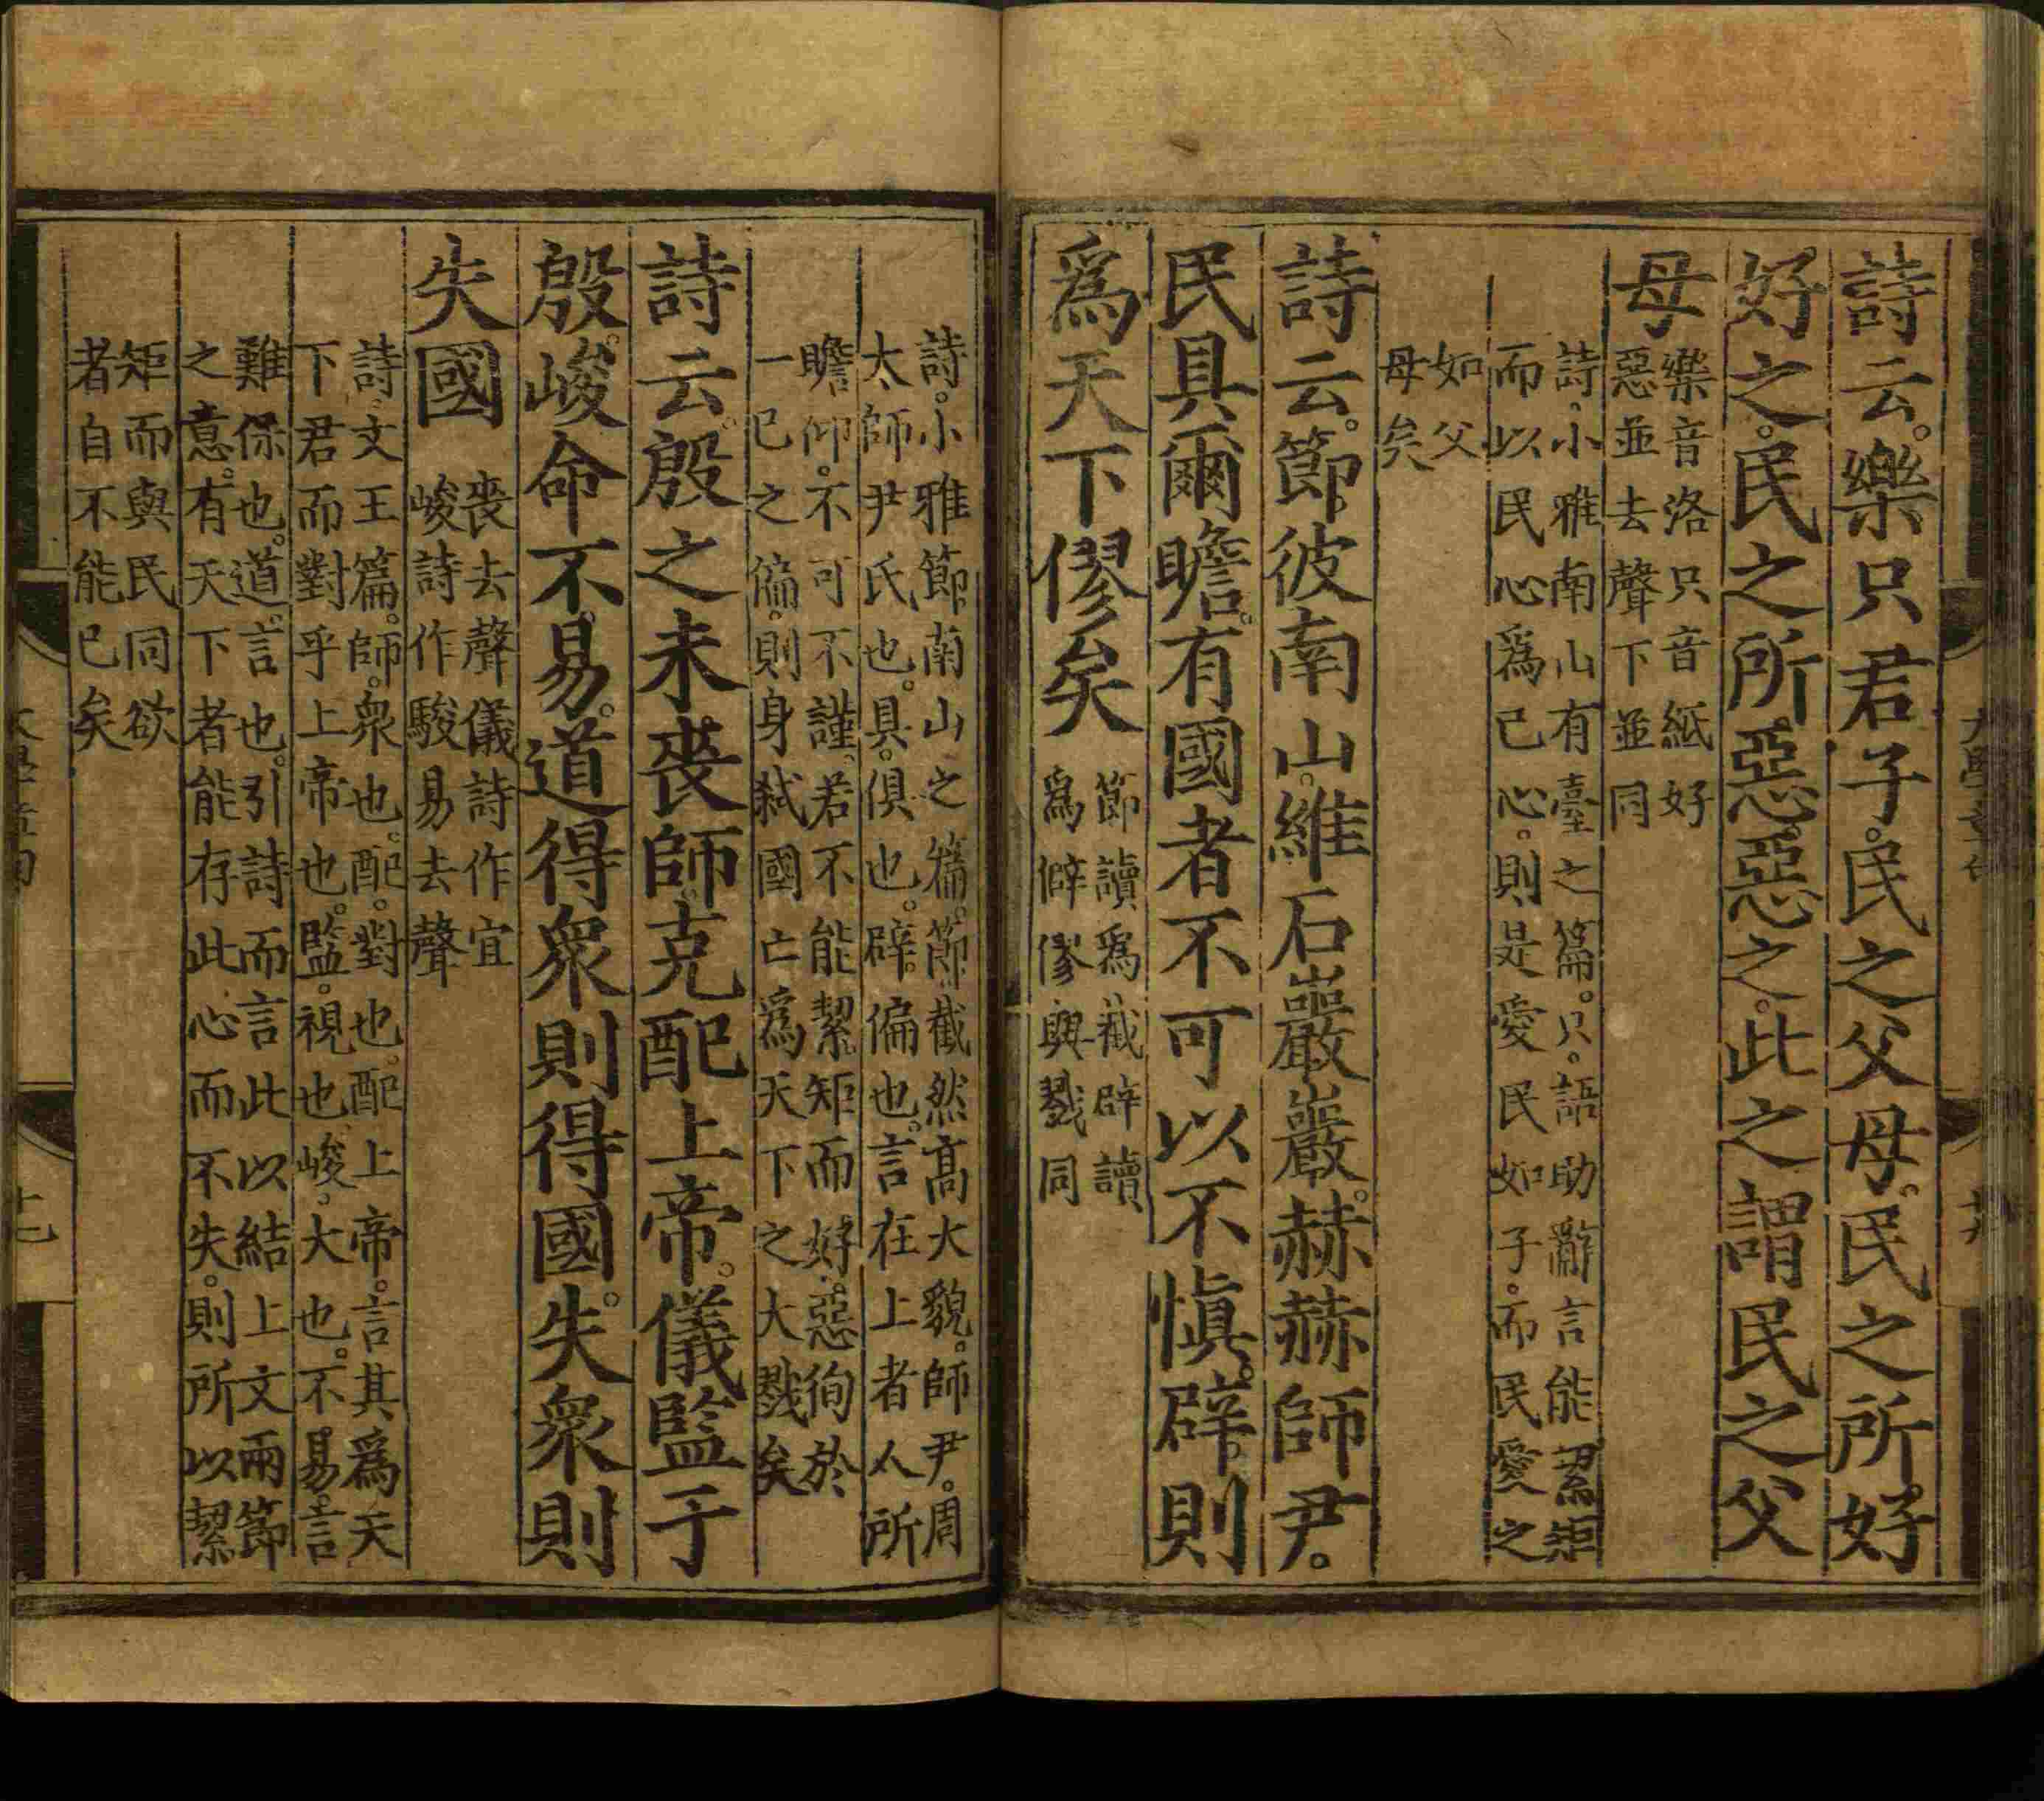 詩云。樂只君子。民之父母。民之所好
好之。民之所惡惡之。此之謂民之父
母
樂音洛只音紙好
惡並去聲下並同
詩。小雅南山有臺之篇。只。語助辭言能絜矩
而以民心爲己心。則是愛民如子。而民愛之
如父
母矣
詩云。節彼南山。維石巖巖。赫赫師尹。
民具爾瞻。有國者不可以不愼。辟則
爲天下僇矣
節讀爲截辟讀
爲僻僇與戮同
詩。小雅節南山之篇。節截然高大貌。師尹。周
太師尹氏也。具。俱也。辟。偏也。言在上者人所
瞻仰。不可不謹。若不能絜矩而好惡徇於
一已之偏。則身弑國亡爲天下之大戮矣
詩云。殷之未喪師。克配上帝。儀監于
殷。峻命不易。道得衆則得國。失衆則
失國
喪去聲儀詩作宜
峻詩作駿易去聲
詩。文王篇。師。衆也。配。對也。配上帝。言其爲天
下君而對乎上帝也。監。視也。峻。大也。不易。言
難保也。道。言也。引詩而言此以結上文兩節
之意。有天下者能存此心而不失。則所以絜
矩而與民同欲
者自不能已矣